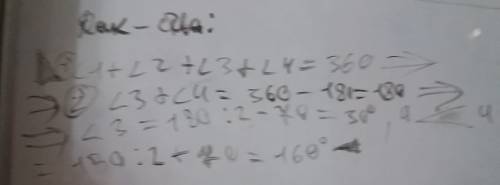 ∠1+∠2+∠3+∠4=360 =>
=> 2) ∠3+∠4=360-180=180 =>
=> ∠3=180:2-70=30°, ∠4
=180:2+70=160°